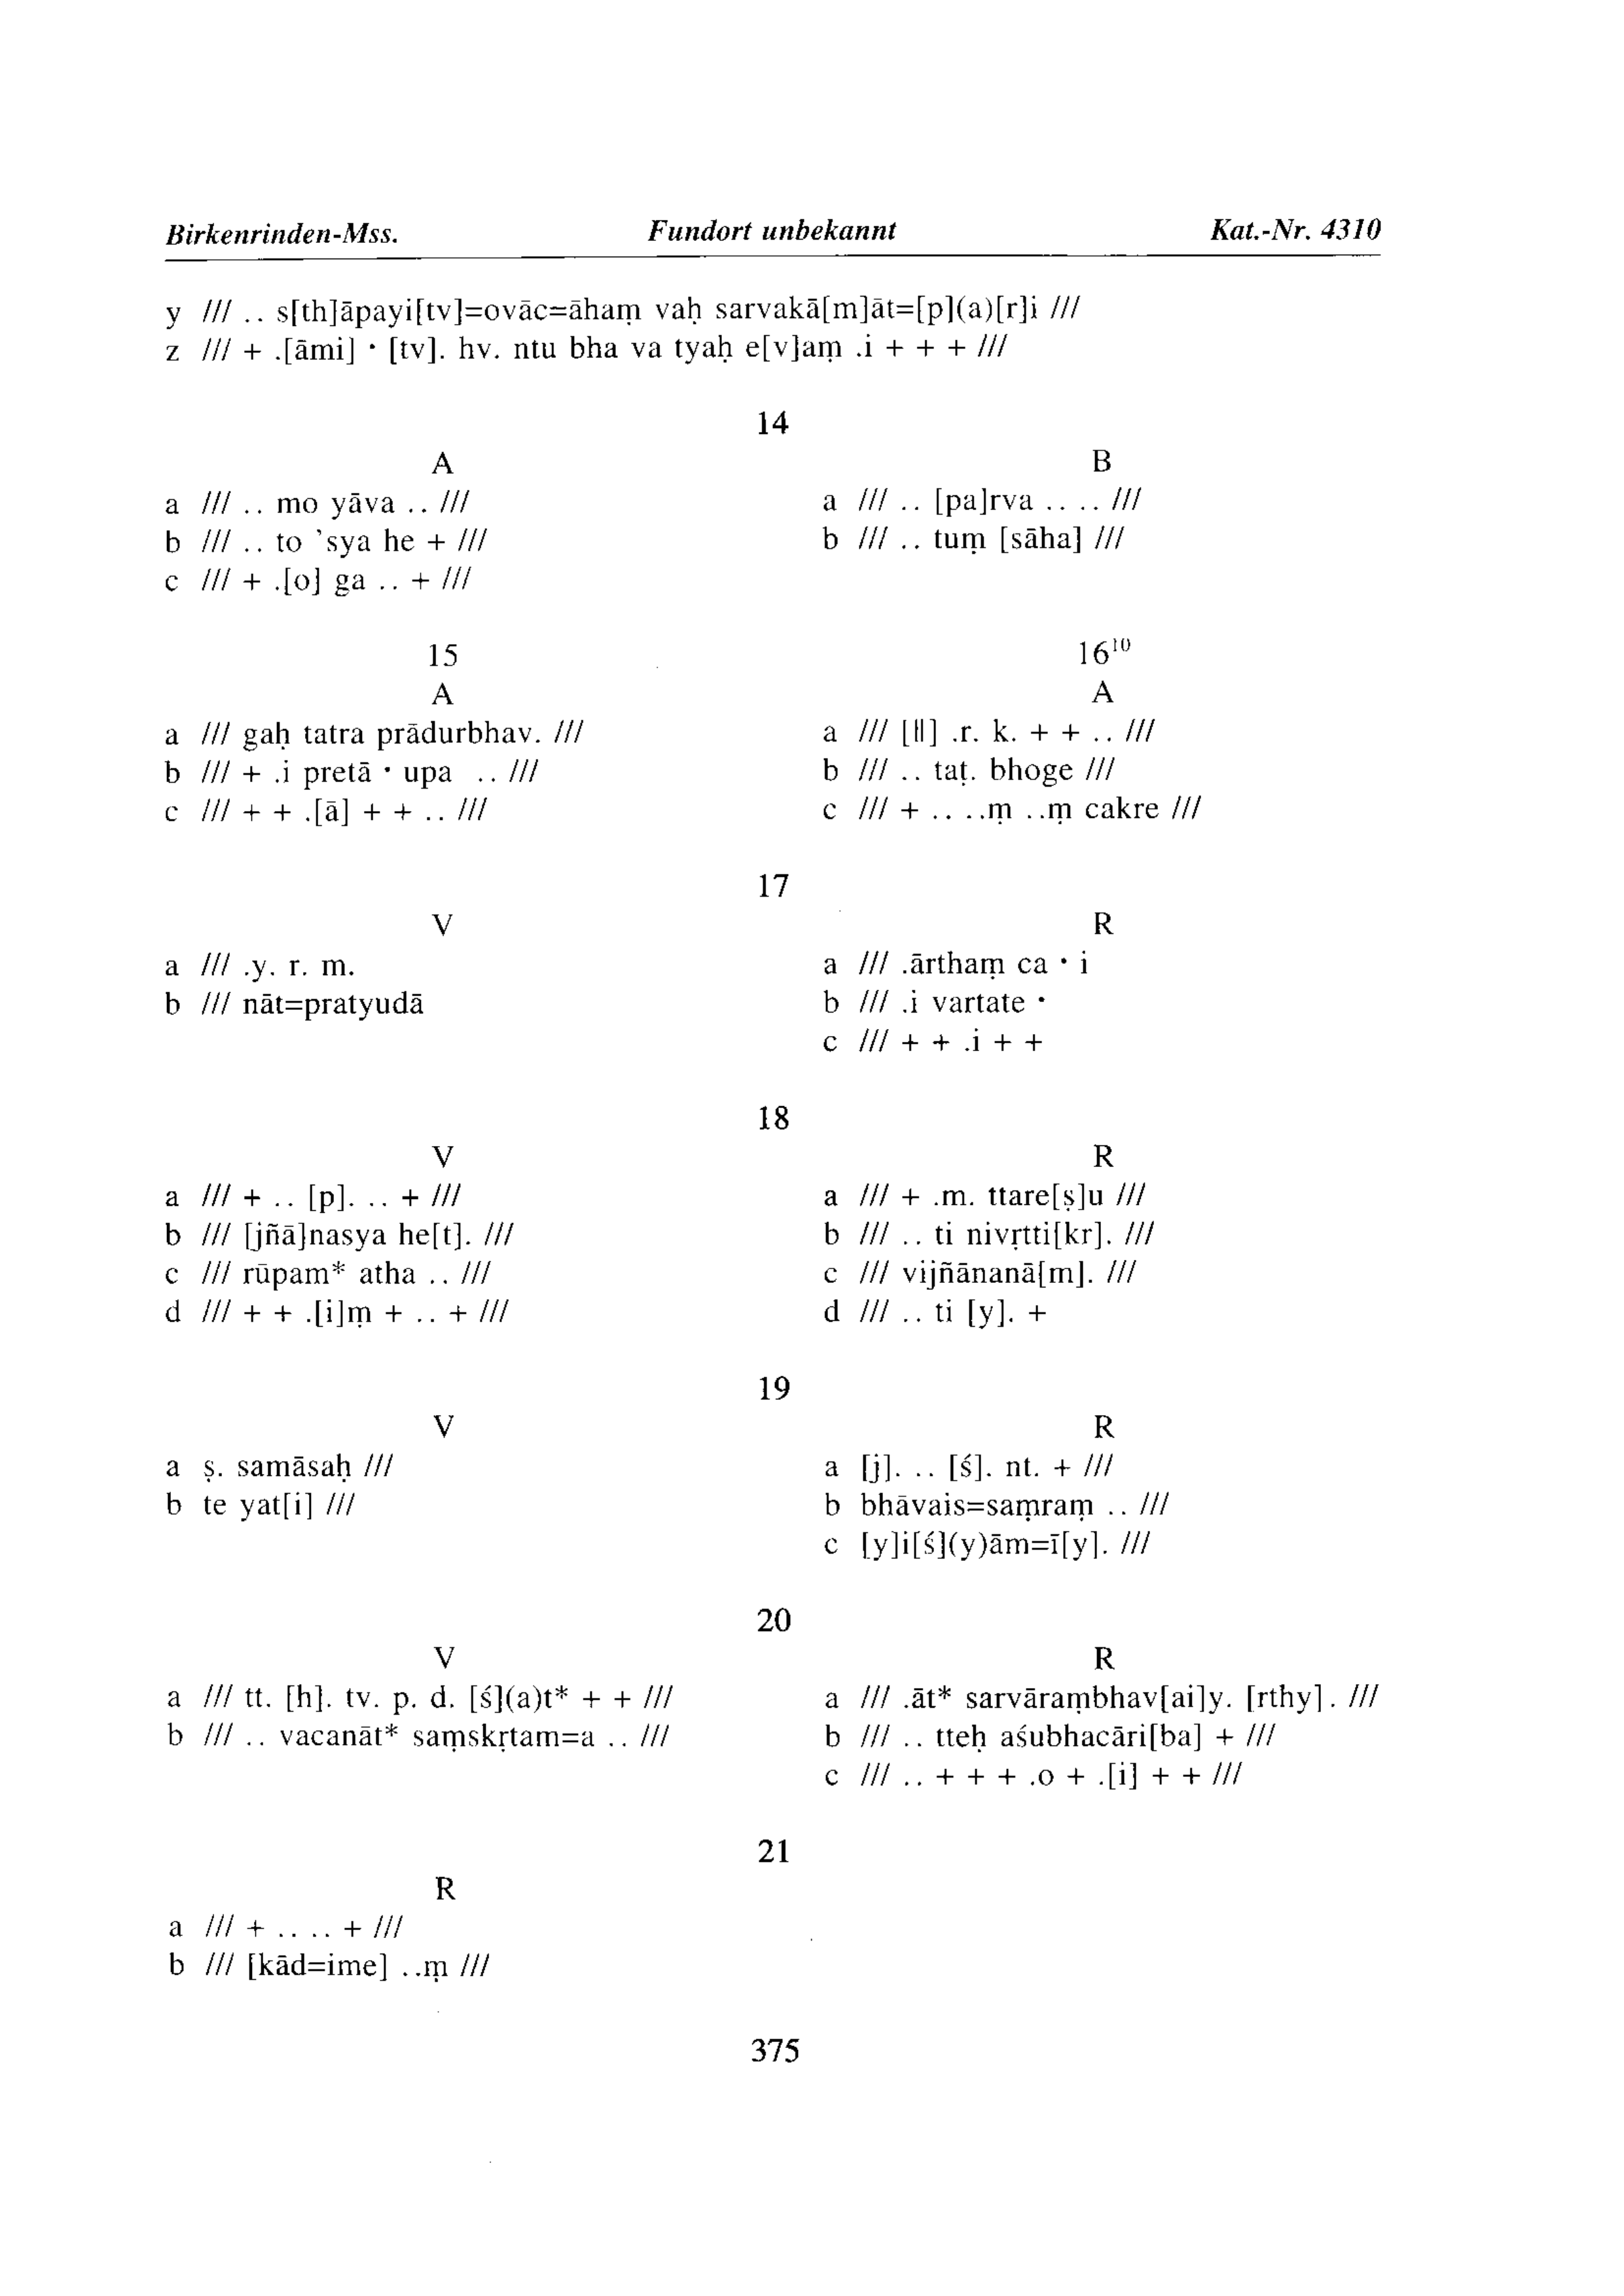 Birkenrinden-Mss. Fundort unbekannt Kat.-Nr. 4310
y /// .. s[th]āpayi[tv]=ovāc=āhaṃ vaḥ sarvakā[m]āt=[p](a)[r]i ///
z /// + .[āmi] • [tv]. hv. ntu bha va tyaḥ e[v]aṃ .i + + + ///
14
A
a /// .. mo yāva .. ///
b /// .. to ’sya he + ///
c /// + .[o] ga .. + ///
B
a /// .. [pa]rva .. .. ///
b /// .. tuṃ [sāha] ///
15
A
a /// gaḥ tatra prādurbhav. ///
b /// + .i pretā • upa .. ///
c /// + + .[ā] + + .. ///
16¹⁰
A
a /// [||] .r. k. + + .. ///
b /// .. taṭ. bhoge ///
c /// + .. ..ṃ ..ṃ cakre ///
17
V
a /// .y. r. m.
b /// nāt=pratyudā
R
a /// .ārthaṃ ca • i
b /// .i vartate •
c /// + + .i + +
18
V
a /// + .. [p]. .. + ///
b /// [jñā]nasya he[t]. ///
c /// rūpam* atha .. ///
d /// + + .[i]ṃ + .. + ///
R
a /// + .m. ttare[ṣ]u ///
b /// .. ti nivṛtti[kr]. ///
c /// vijñānanā[m]. ///
d /// .. ti [y]. +
19
V
a ṣ. samāsaḥ ///
b te yat[i] ///
R
a [j]. .. [ś]. nt. + ///
b bhāvais=saṃraṃ .. ///
c [y]i[ś](y)ām=ī[y]. ///
20
V
a /// tt. [h]. tv. p. d. [ś](a)t* + + ///
b /// .. vacanāt* saṃskṛtam=a .. ///
R
a /// .āt* sarvāraṃbhav[ai]y. [rthy]. ///
b /// .. tteḥ aśubhacāri[ba] + ///
c /// .. + + + .o + .[i] + + ///
21
R
a /// + .. .. + ///
b /// [kād=ime] ..ṃ ///
375